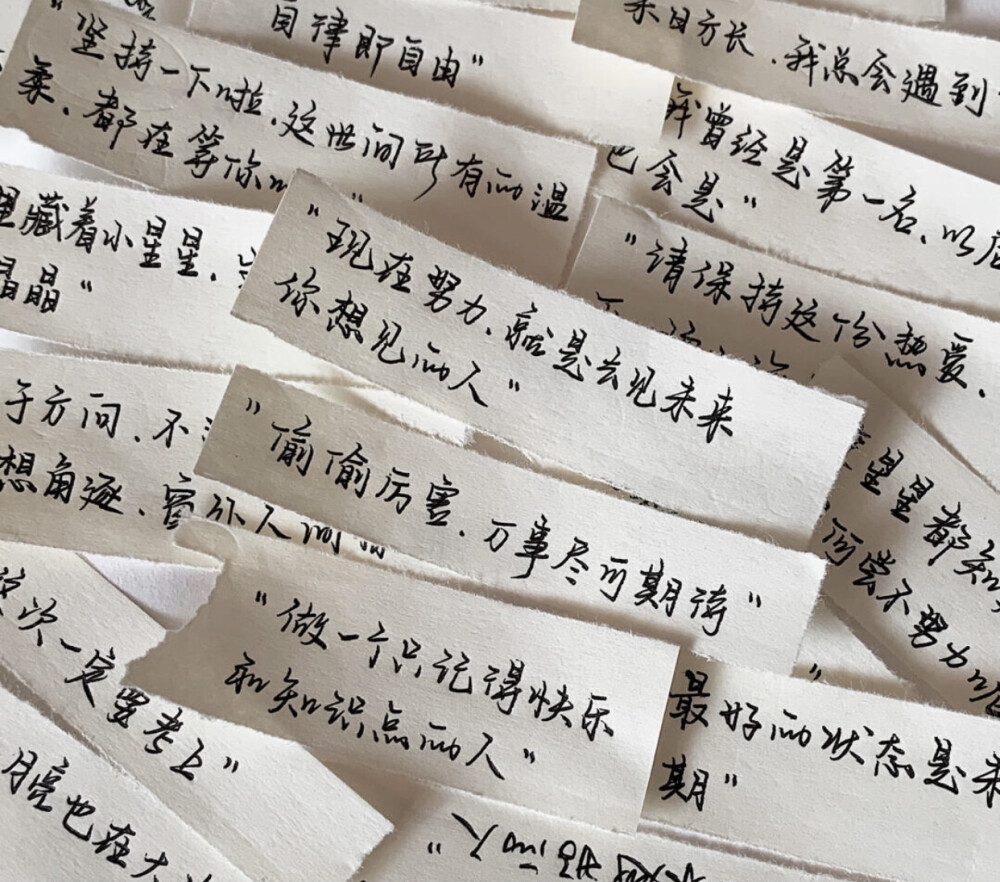 自律即自由"
来日方长.我总会遇到
"坚持一下啦.这世间所有的温
柔.都在等你
我曾经是第一名.以后
也会是"
里藏着小星星.
晶晶"
"现在努力.就是去见未来
你想见的人"
"请保持这份热爱.
于方向.不
想角逐.窗外人间
"偷偷厉害.万事尽可期待"
星星都知
何尝不努力呢
"做一个只记得快乐
和知识点的人"
这次一定要考上"
最好的状态是未
期"
月亮也在大